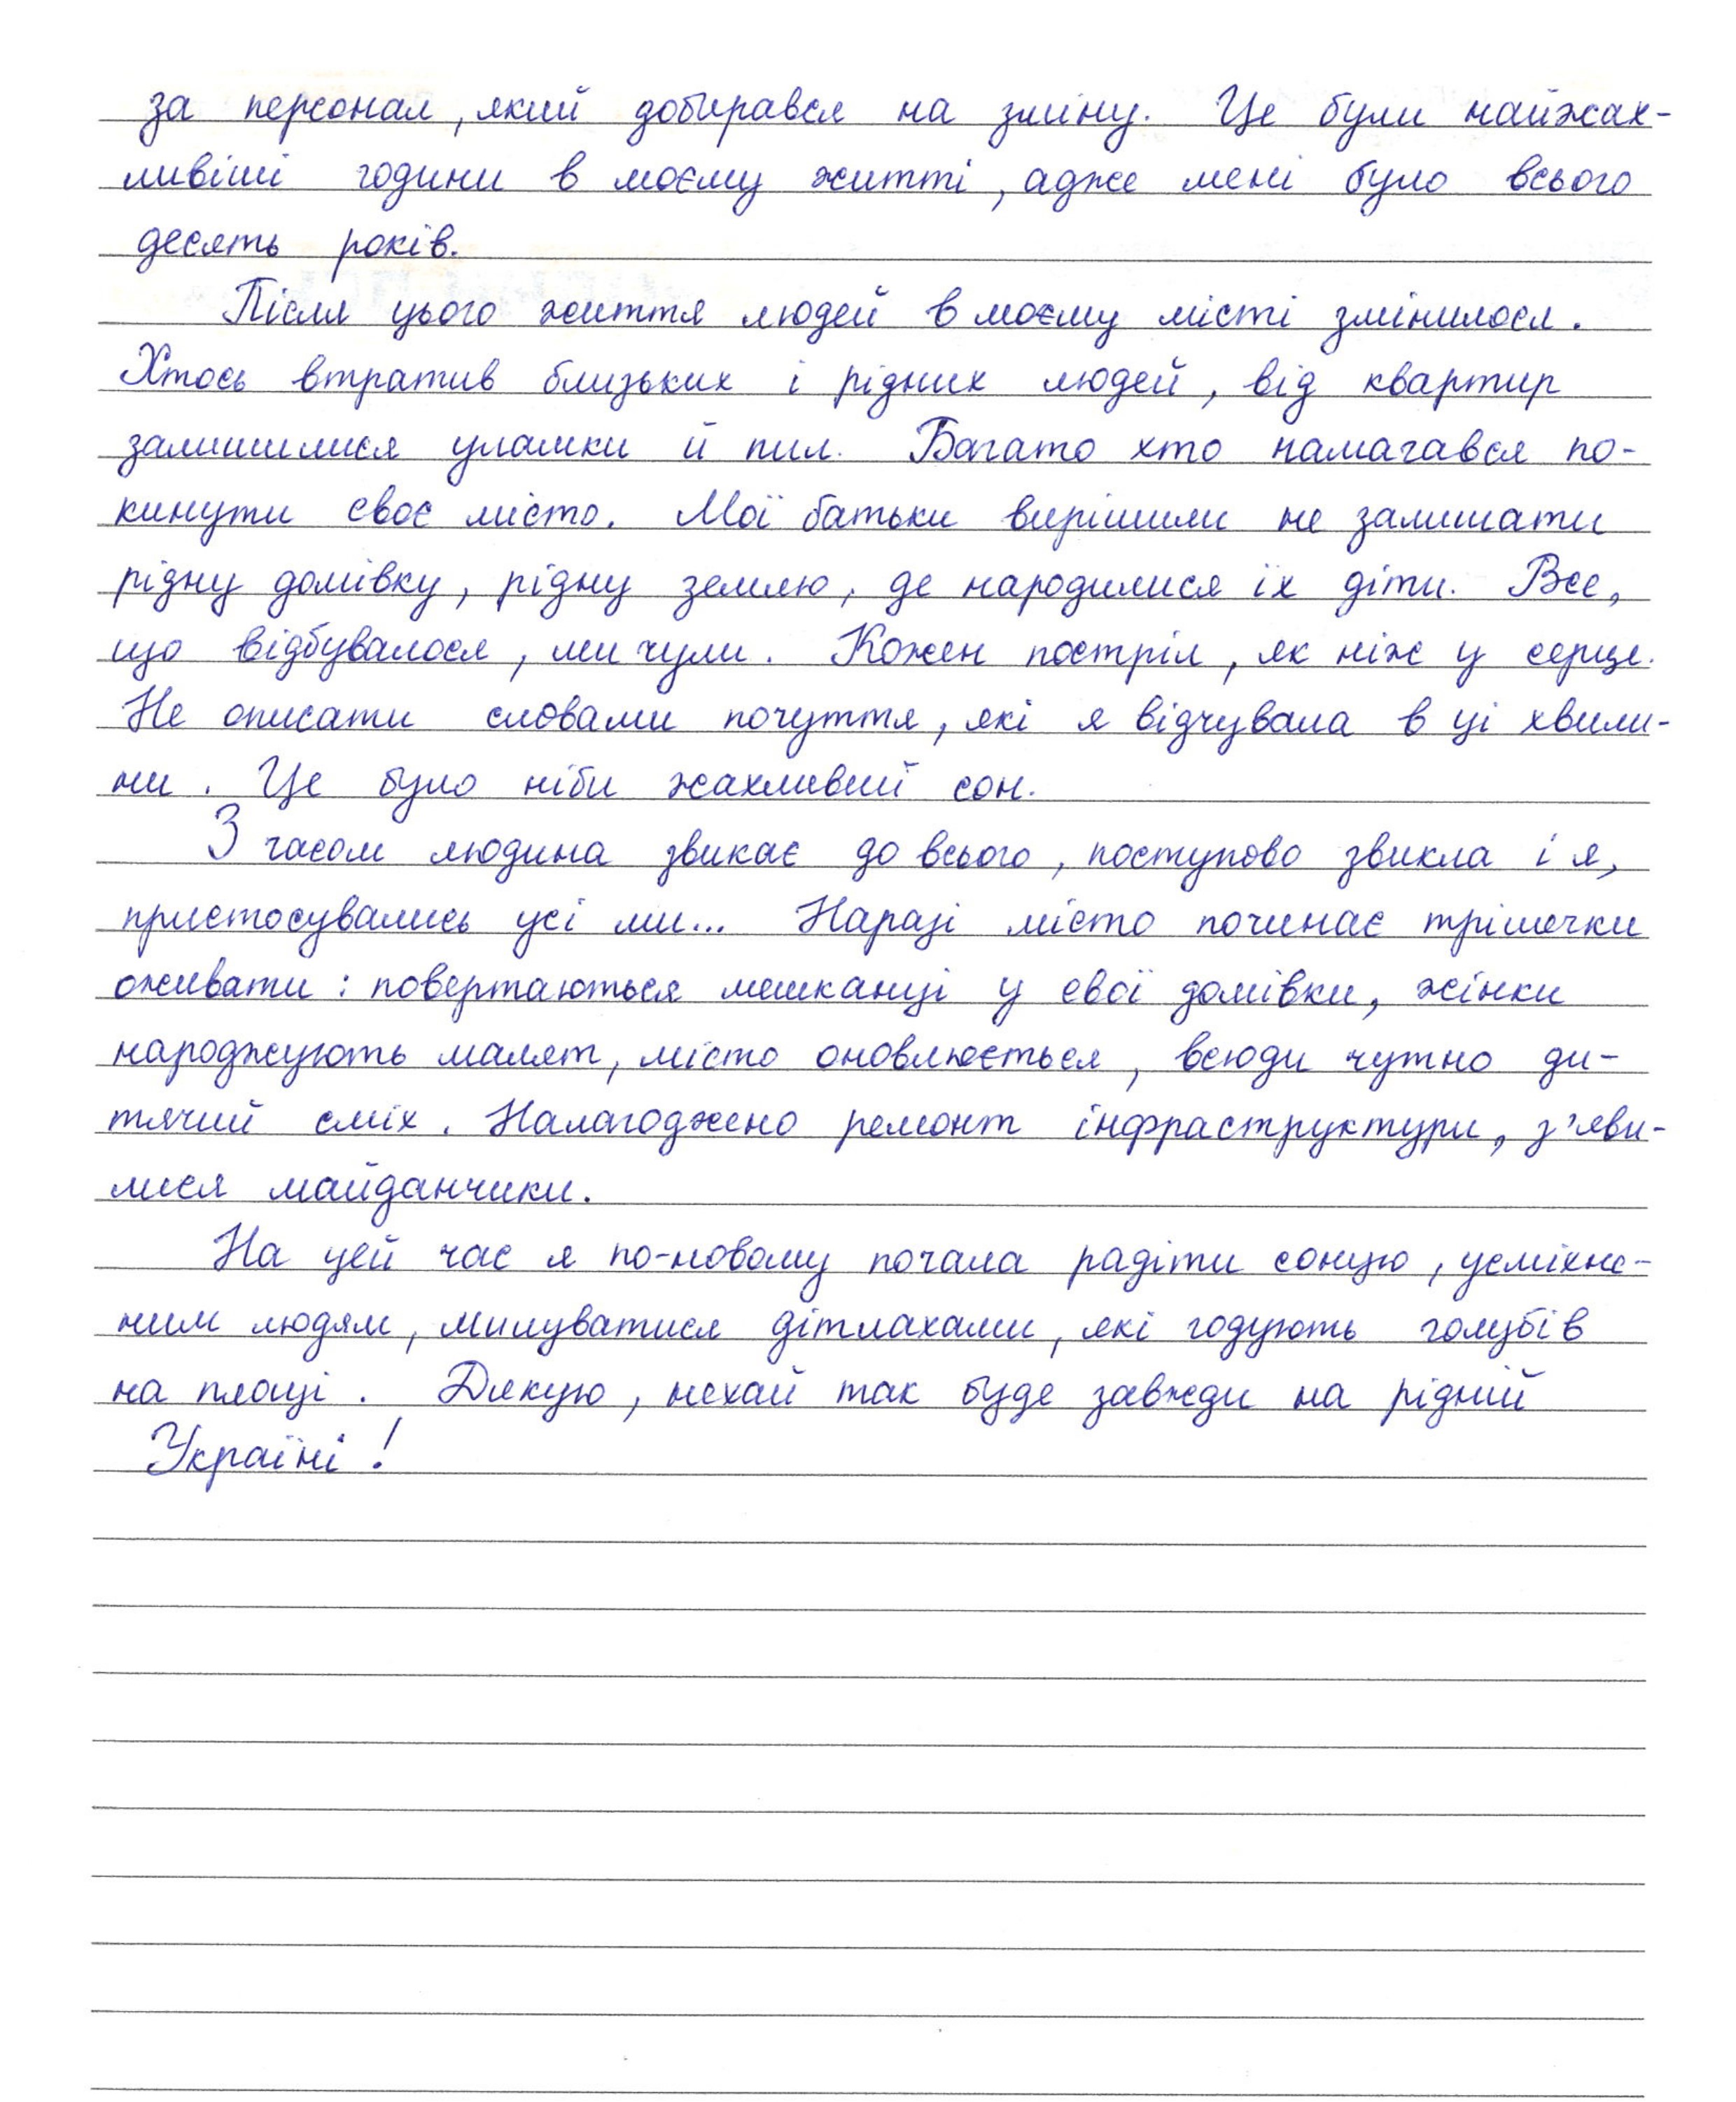 за персонал, який добирався на зміну. Це були найжах-
ливіші години в моєму житті, адже мені було всього
десять років.
Після цього життя людей в моєму місті змінилося.
Хтось втратив близьких і рідних людей, від квартир
залишилися уламки й пил. Багато хто намагався по-
кинути своє місто. Мої батьки вирішили не залишати
рідну домівку, рідну землю, де народилися їх діти. Все,
що відбувалося, ми чули. Кожен постріл, як ніж у серце.
Не описати словами почуття, які я відчувала в ці хвили-
ни. Це було ніби жахливий сон.
З часом людина звикає до всього, поступово звикла і я,
пристосувались усі ми... Наразі місто починає трішечки
оживати: повертаються мешканці у свої домівки, жінки
народжують малят, місто оновлюється, всюди чутно ди-
тячий сміх. Налагоджено ремонт інфраструктури, з'яви-
лися майданчики.
На цей час я по-новому почала радіти сонцю, усміхне-
ним людям, милуватися дітлахами, які годують голубів
на площі. Дякую, нехай так буде завжди на рідній
Україні!